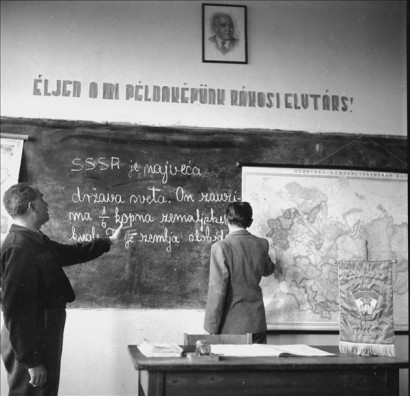 ÉLJEN A MI PÉLDAKÉPÜNK RÁKOSI ELVTÁRS!
SSSR je najveća
država sveta. On zauzi-
ma 1/6 kopna zemaljske
je zemlja slobod